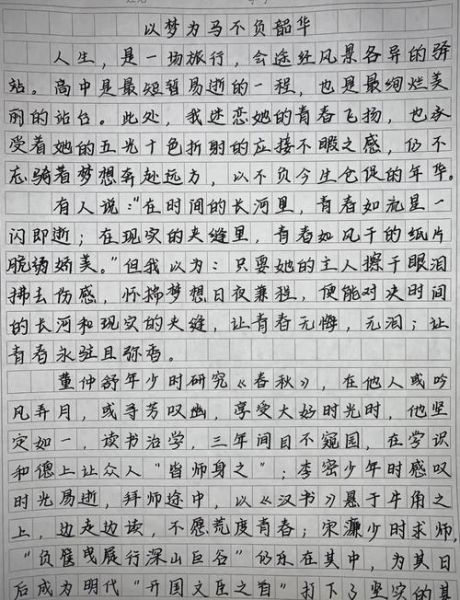 以梦为马不负韶华
人生，是一场旅行，会途经风景各异的驿
站。高中是最短暂易逝的一程，也是最绚烂美
丽的站台。此处，我迷恋她的青春飞扬，也承
受着她的五光十色折射的应接不暇之感，仍不
忘骑着梦想奔赴远方，以不负今生仓促的年华。
有人说："在时间的长河里，青春如流星一
闪即逝；在现实的夹缝里，青春如风干的纸片
脆弱娇美。"但我以为：只要她的主人擦干眼泪
拂去伤感，怀揣梦想日夜兼程，便能对决时间
的长河和现实的夹缝，让青春无悔，无泪；让
青春永驻且弥香。
董仲舒年少时研究《春秋》，在他人或吟
风弄月，或寻芳叹幽，享受大好时光时，他坚
定如一，读书治学，三年间目不窥园，在学识
和德上让众人"皆师身之"；李密少年时感叹
时光易逝，拜师途中，以《汉书》悬于牛角之
上，边走边读，不愿荒度青春；宋濂少时求师，
"负箧曳屣行深山巨谷"仍乐在其中，为其日
后成为明代"开国文臣之首"打下了坚实的基